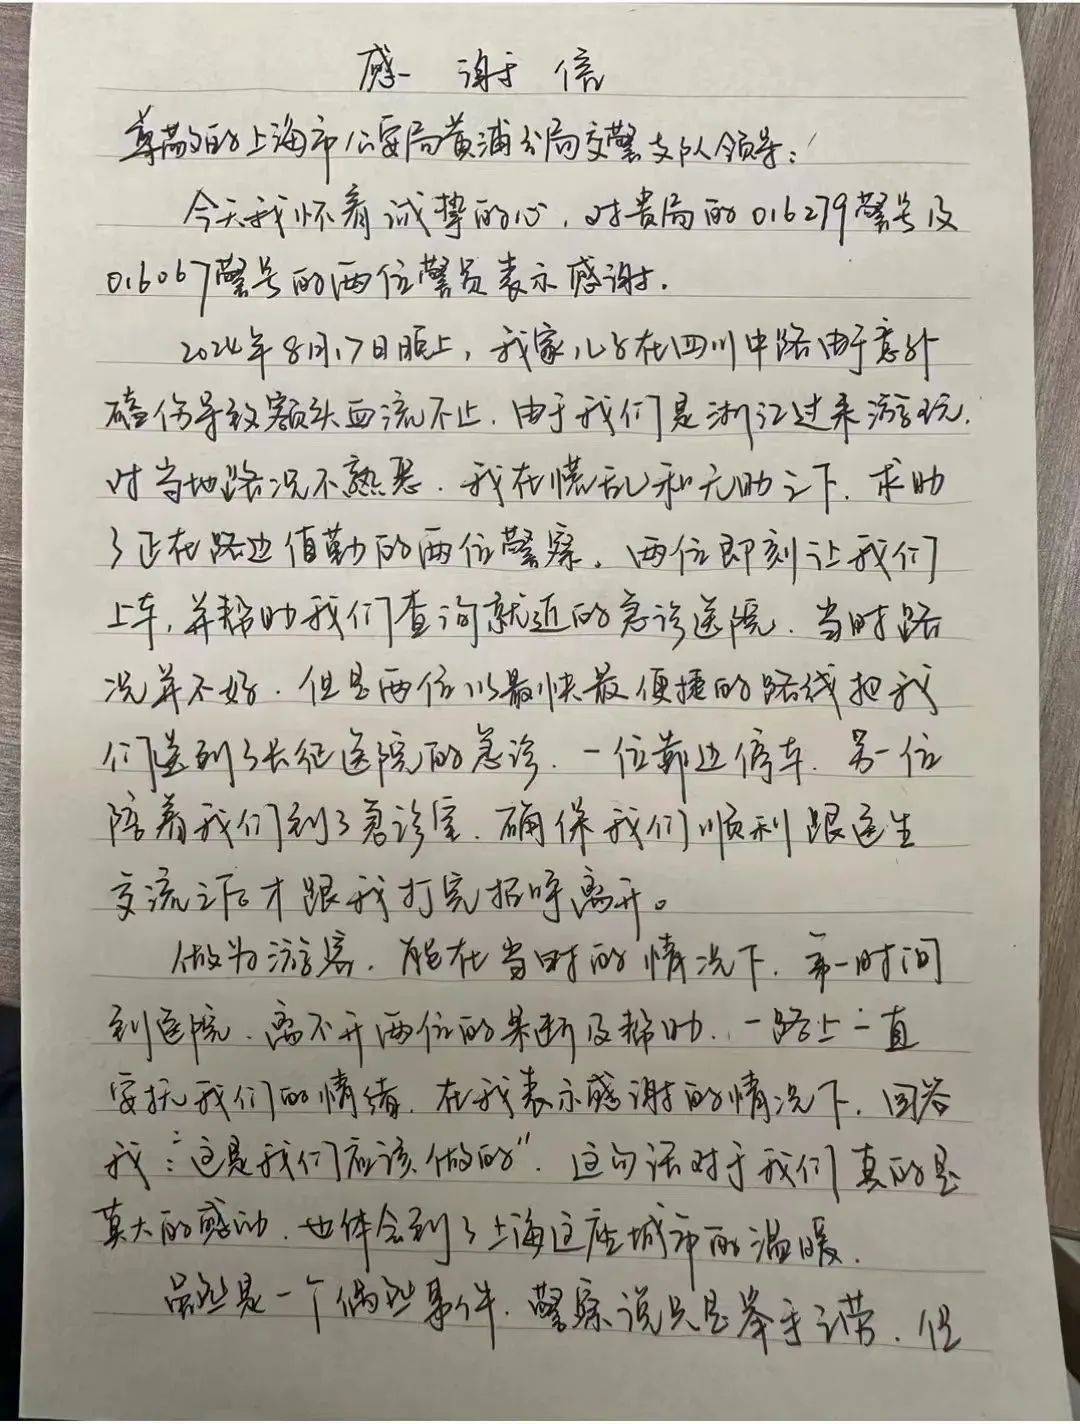 感谢信
尊敬的上海市公安局黄浦分局交警支队领导：
今天我怀着诚挚的心，对贵局的016279警号及
016067警号的两位警员表示感谢.
2024年8月17日晚上，我家儿子在四川中路由于意外
磕伤导致额头血流不止.由于我们是浙江过来游玩.
对当地路况不熟悉.我在慌乱和无助之下.求助
了正在路边值勤的两位警察.两位即刻让我们
上车,并帮助我们查询就近的急诊医院.当时路
况并不好.但是两位以最快最便捷的路线把我
们送到了长征医院的急诊.一位靠边停车.另一位
陪着我们到了急诊室.确保我们顺利跟医生
交流之后才跟我打完招呼离开。
做为游客.能在当时的情况下.第一时间
到医院.离不开两位的果断及帮助.一路上一直
安抚我们的情绪.在我表示感谢的情况下.回答
我：“这是我们应该做的”.这句话对于我们真的是
莫大的感动.也体会到了上海这座城市的温暖.
虽然是一个偶然事件.警察说只是举手之劳.但